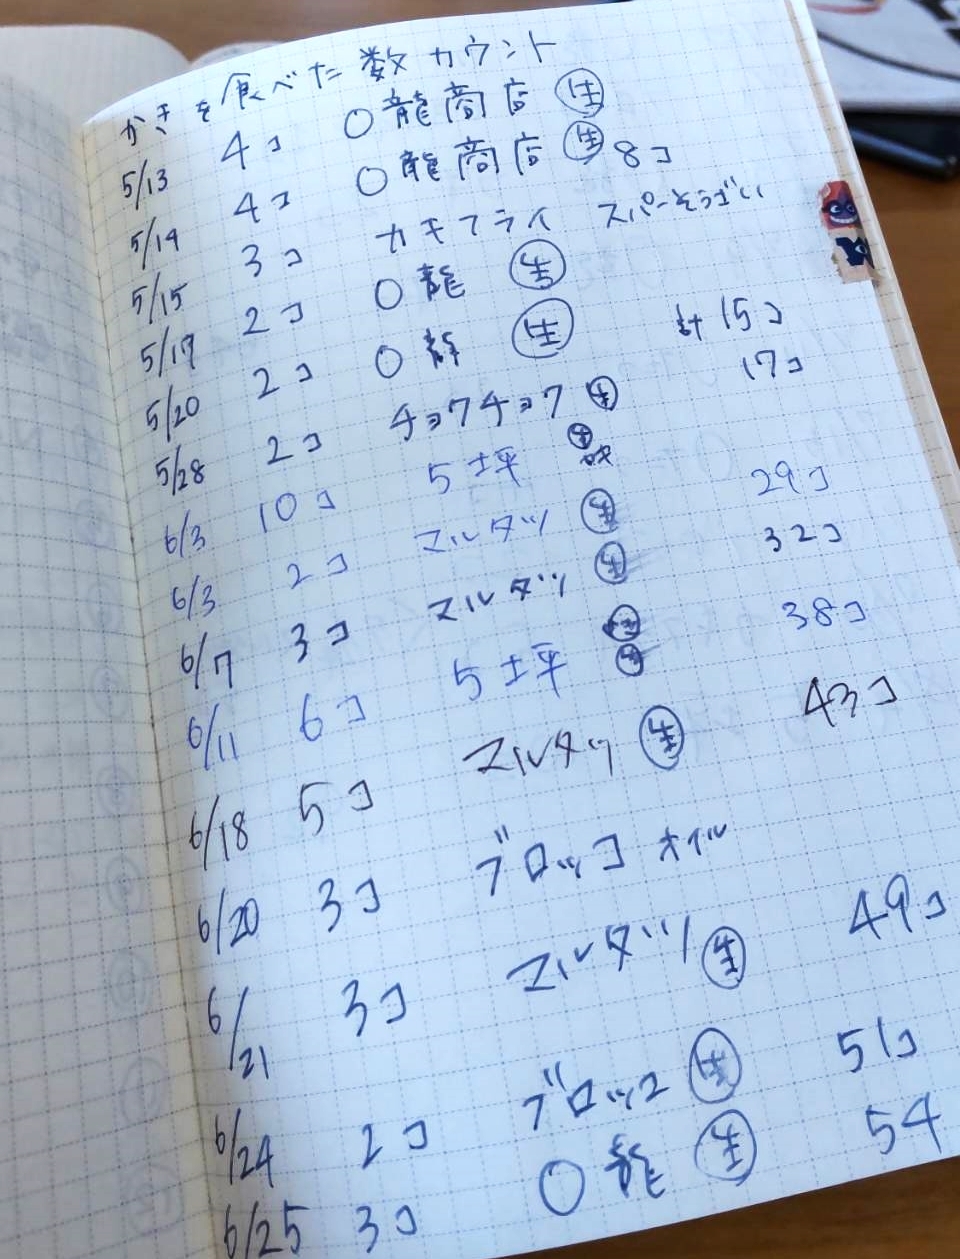 かきを食べた数カウント
5/13 4コ ○龍商店 生
5/14 4コ ○龍商店 生 8コ
5/15 3コ カキフライ スパーそうざい
5/17 2コ ○龍 生
5/20 2コ ○龍 生 計15コ
5/28 2コ チョクチョク 生 17コ
6/3 10コ 5土坪 生
6/3 2コ マルダツ 生 29コ
6/7 3コ マルダツ 生 32コ
6/11 6コ 5土坪 38コ
6/18 5コ マルタツ 生 43コ
6/20 3コ ブロッコ オイル
6/21 3コ マルダツ 生 49コ
6/24 2コ ブロッコ 生 51コ
6/25 3コ ○龍 生 54